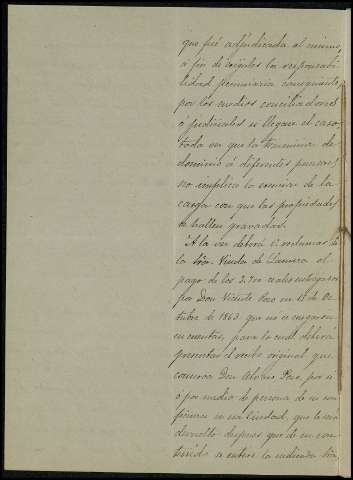 que fué adjudicada al mismo,
á fin de exigirles la responsabi-
lidad pecuniaria consiguiente,
por los medios conciliadores
ó judiciales si llegare el caso,
toda vez que la transmision de
dominio á diferentes personas,
no implica la exencion de la
carga con que las propiedades
se hallen gravadas.
A la vez deberá V. reclamar de
la Sra. Viuda de Zamora el
pago de los 3.700 reales entregados
por Don Vicente Pozo en 13 de Oc-
tubre de 1863 que no se cargaron
en cuentas, para lo cual deberá
presentar el recibo original que
conserva Don Alvaro Pozo, por sí
ó por medio de persona de su con-
fianza en esa Ciudad, que le será
devuelto despues que de su con-
tenido se entere la indicada Sra,